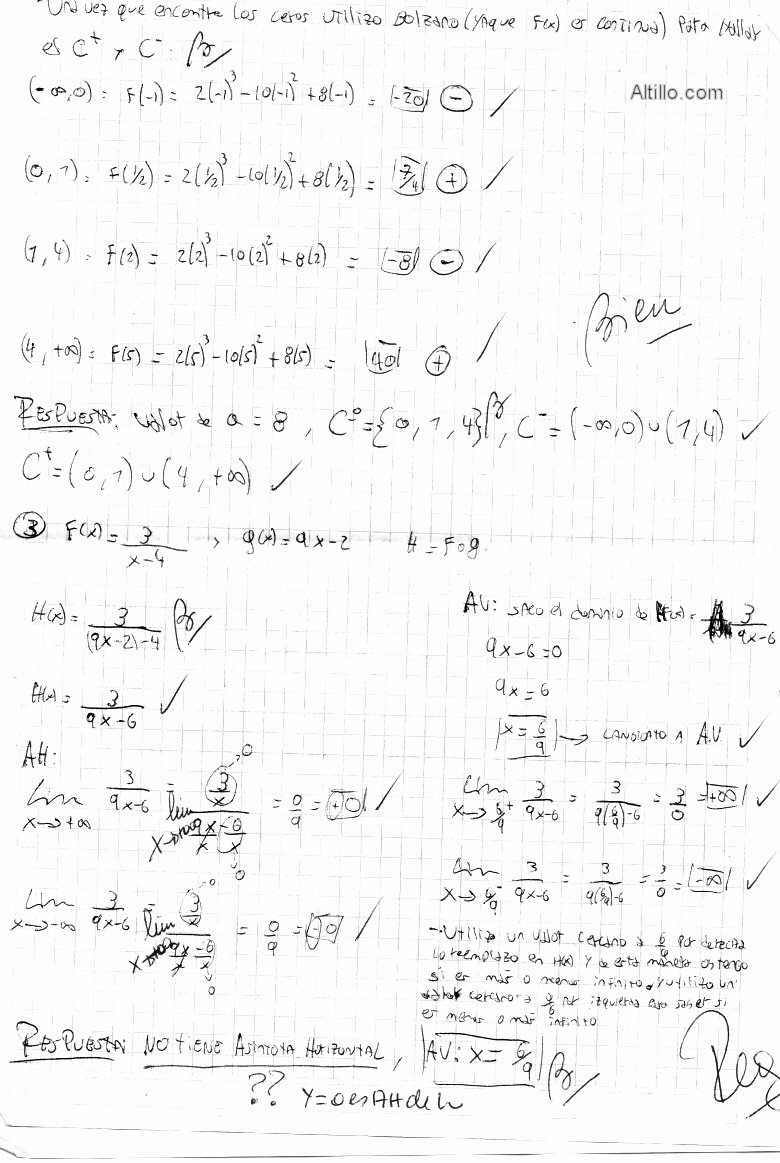 Una vez que encontre los ceros utilizo Bolzano (ya que F(x) es continua) para hallar
es C⁺ y C⁻: B
Altillo.com
(-∞,0): F(-1) = 2(-1)³ -10(-1)² +8(-1) = |-20| ⊖ ✓
(0,1): F(1/2) = 2(1/2)³ -10(1/2)² +8(1/2) = |7/4| ⊕ ✓
(1,4): F(2) = 2(2)³ -10(2)² +8(2) = |-8| ⊖ ✓
Bien
(4,+∞): F(5) = 2(5)³ -10(5)² +8(5) = |40| ⊕ ✓
RESPUESTA: valor de a = 8, C⁰={0,1,4} B, C⁻=(-∞,0)∪(1,4) ✓
C⁺=(0,1)∪(4,+∞) ✓
③ F(x)= 3/(x-4) , g(x)=9x-2 H = Fog
H(x)= 3/((9x-2)-4) B
H(x)= 3/(9x-6) ✓
AH:
Lim x→+∞ 3/(9x-6) = (3/x)/(lim x→+∞ 9x/x - 6/x) = 0/9 = |+0| ✓
Lim x→-∞ 3/(9x-6) = (3/x)/(lim x→-∞ 9x/x - 6/x) = 0/9 = |-0| ✓
AV: saco el dominio de H(x) = 3/(9x-6)
9x-6=0
9x=6
|x=6/9| → CANDIDATO A A.V ✓
Lim x→6/9⁺ 3/(9x-6) = 3/(9(6/9)-6) = 3/0 = |+∞| ✓
Lim x→6/9⁻ 3/(9x-6) = 3/(9(6/9)-6) = 3/0 = |-∞| ✓
- Utilizo un valor cercano a 6/9 por derecha
lo reemplazo en H(x) y de esta manera obtengo
si es más o menos infinito, y utilizo un
valor cercano a 6/9 por izquierda para saber si
es menos o más infinito
RESPUESTA: NO TIENE ASINTOTA HORIZONTAL, |AV: x= 6/9| B
?? Y=0 es AH de h
Reg